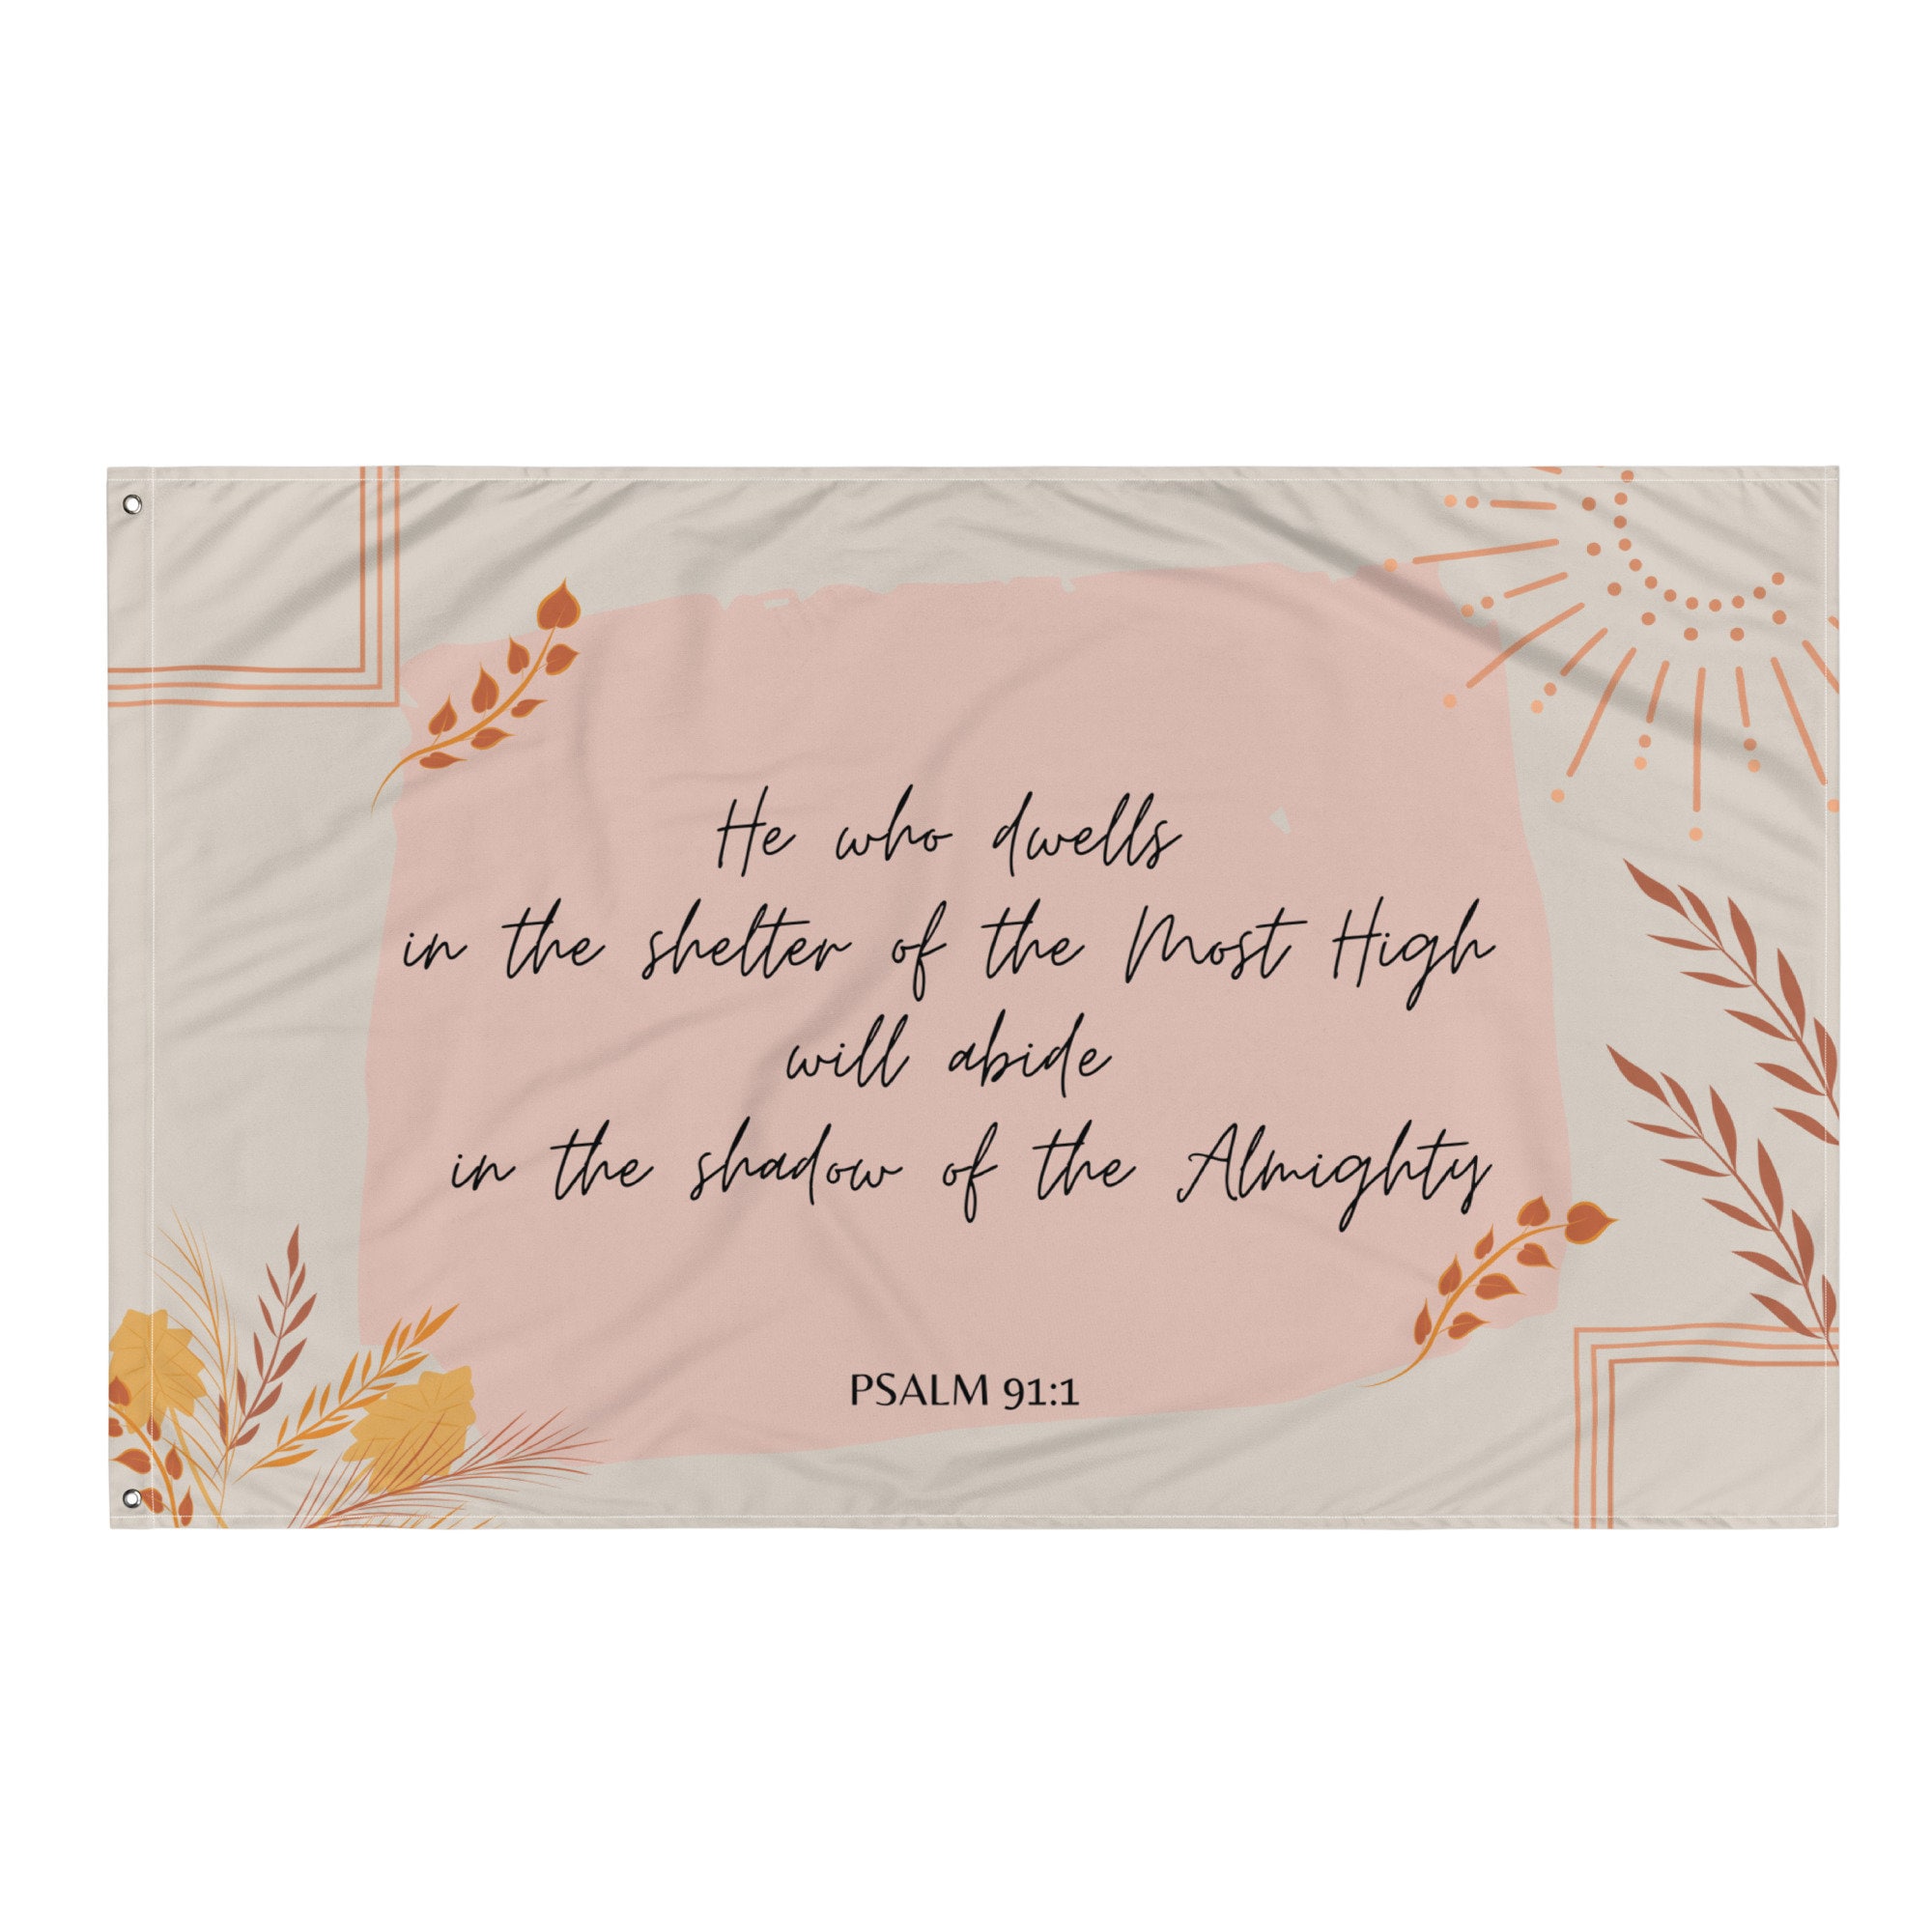 He who dwells
in the shelter of the Most High
will abide
in the shadow of the Almighty
PSALM 91:1